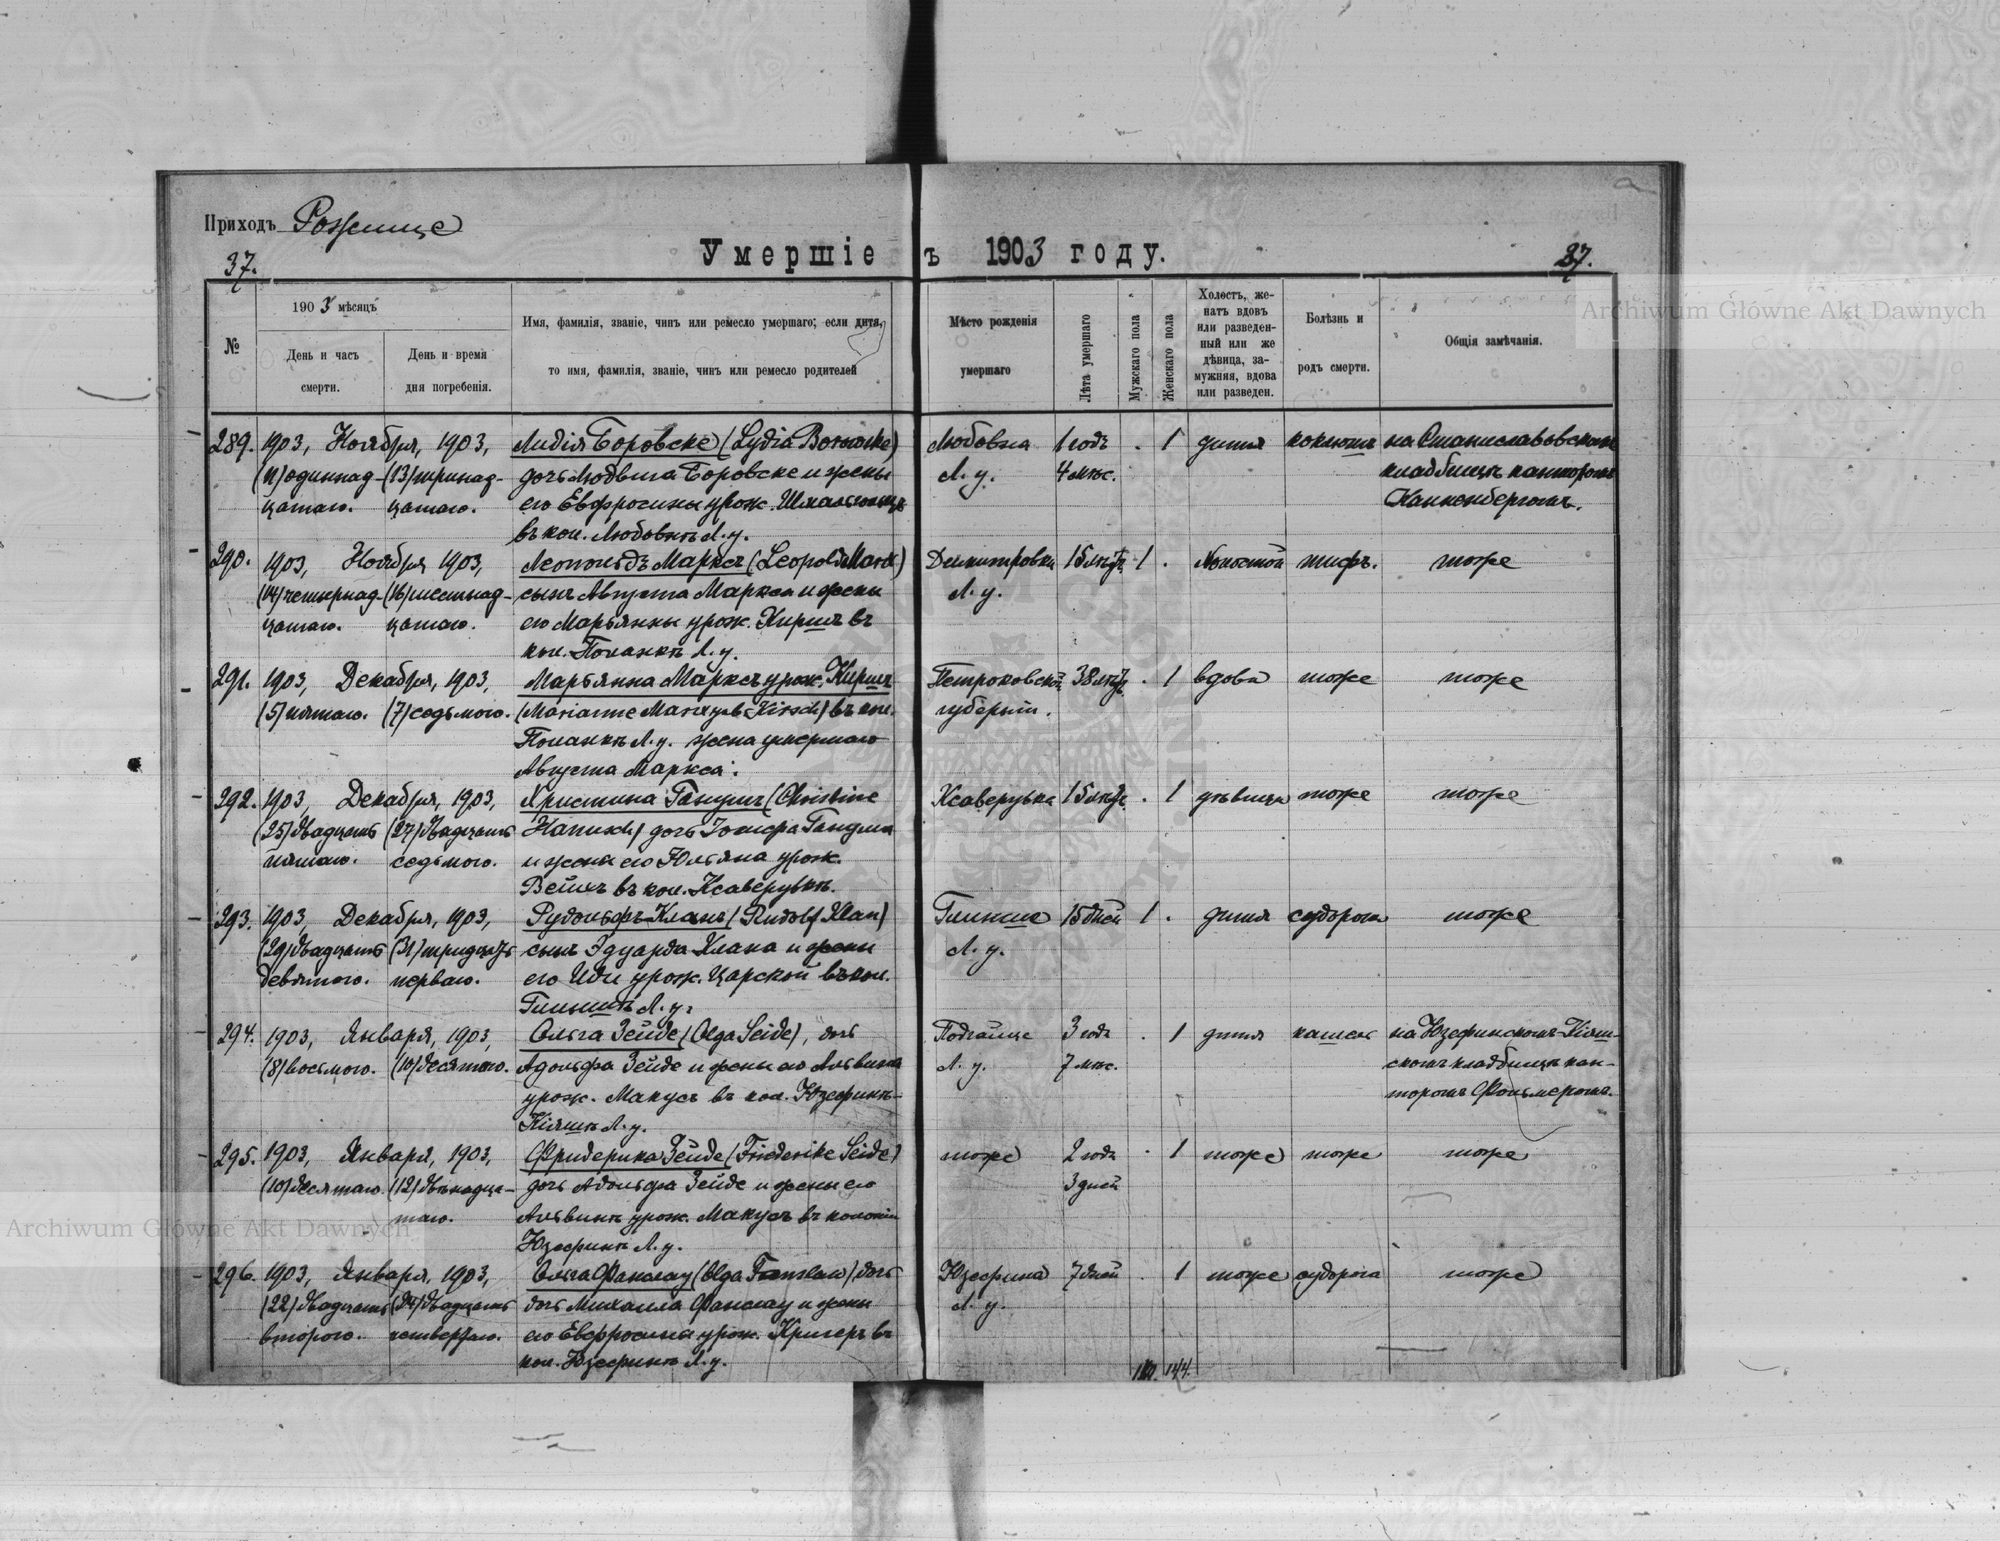 Приходъ Рожище
Умершіе въ 1903 году.
37.
37.
№
1903 мѣсяцъ
День и часъ
смерти.
День и время
дня погребенія.
Имя, фамилія, званіе, чинъ или ремесло умершаго; если дитя,
то имя, фамилія, званіе, чинъ или ремесло родителей
Мѣсто рожденія
умершаго
Лѣта умершаго
Мужскаго пола
Женскаго пола
Холостъ, же-
натъ вдовъ
или разведен-
ный или же
дѣвица, за-
мужняя, вдова
или разведен.
Болѣзнь и
родъ смерти.
Общія замѣчанія.
289. 1903, Ноября, 1903, Лидія Боровске (Lydia Borowske) Любовка 1 годъ . 1 дитя коклюшъ на Станиславовскомъ
(11) одиннад- (13) тринад- дочь Людвига Боровске и жены Л. у. 4 мѣс. кладбищѣ канторомъ
цатаго. цатаго. его Евфросины урож.
въ кол. Любовкѣ Л. у.
290. 1903, Ноября 1903, Леопольдъ Марксъ (Leopold Marx) Дмитровка 15 лѣтъ 1 . Холостой тифъ. тоже
(14) четырнад- (16) шестнад- сынъ Августа Маркса и жены Л. у.
цатаго. цатаго. его Марьянны урож. Киршъ въ
кол. Поланкѣ Л. у.
291. 1903, Декабря, 1903, Марьянна Марксъ урож. Киршъ Петроковской 38 лѣтъ . 1 вдова тоже тоже
(5) пятаго. (7) седьмого. (Marianne Marx geb. Kirsch) въ кол. губерніи.
Поланкѣ Л. у. жена умершаго
Августа Маркса.
292. 1903, Декабря, 1903, Христина Ганушъ (Christine Ксаверувка 15 лѣтъ . 1 дѣвица тоже тоже
(25) двадцать (27) двадцать Hanusch) дочь Іосифа Гануша
пятаго. седьмого. и жены его Юльяна урож.
въ кол. Ксаверувкѣ.
293. 1903, Декабря, 1903, Рудольфъ Кланъ (Rudolf Klan) Глинище 15 дней 1 . дитя судорога тоже
(29) двадцать (31) тридцать сынъ Эдуарда Клана и жены Л. у.
девятого. перваго. его Иды урож. Царской въ кол.
Глинищѣ Л. у.
294. 1903, Января, 1903, Ольга Зейде (Olga Seide), дочь Подгайце 3 года . 1 дитя кашель на Юзефинскомъ
(8) восьмого. (10) десятаго. Адольфа Зейде и жены его Альвина Л. у. 7 мѣс. скомъ кладбищѣ кан-
урож. Макусъ въ кол. Юзефинѣ- торомъ
Л. у.
295. 1903, Января, 1903, Фридерика Зейде (Friederike Seide) тоже 2 года . 1 тоже тоже тоже
(10) десятаго. (12) двѣнадца- дочь Адольфа Зейде и жены его 3 дней
таго. Альвинѣ урож. Макусъ въ колоніи
Юзефинѣ Л. у.
296. 1903, Января, 1903, Ольга Фанслау (Olga Fanslau) дочь Юзефина 7 дней . 1 тоже судорога тоже
(22) двадцать (24) двадцать дочь Михаила Фанслау и жены Л. у.
второго. четвертаго. его Евфросина урож. Кригеръ въ
кол. Юзефинѣ Л. у.
144.
Archiwum Główne Akt Dawnych
Archiwum Główne Akt Dawnych